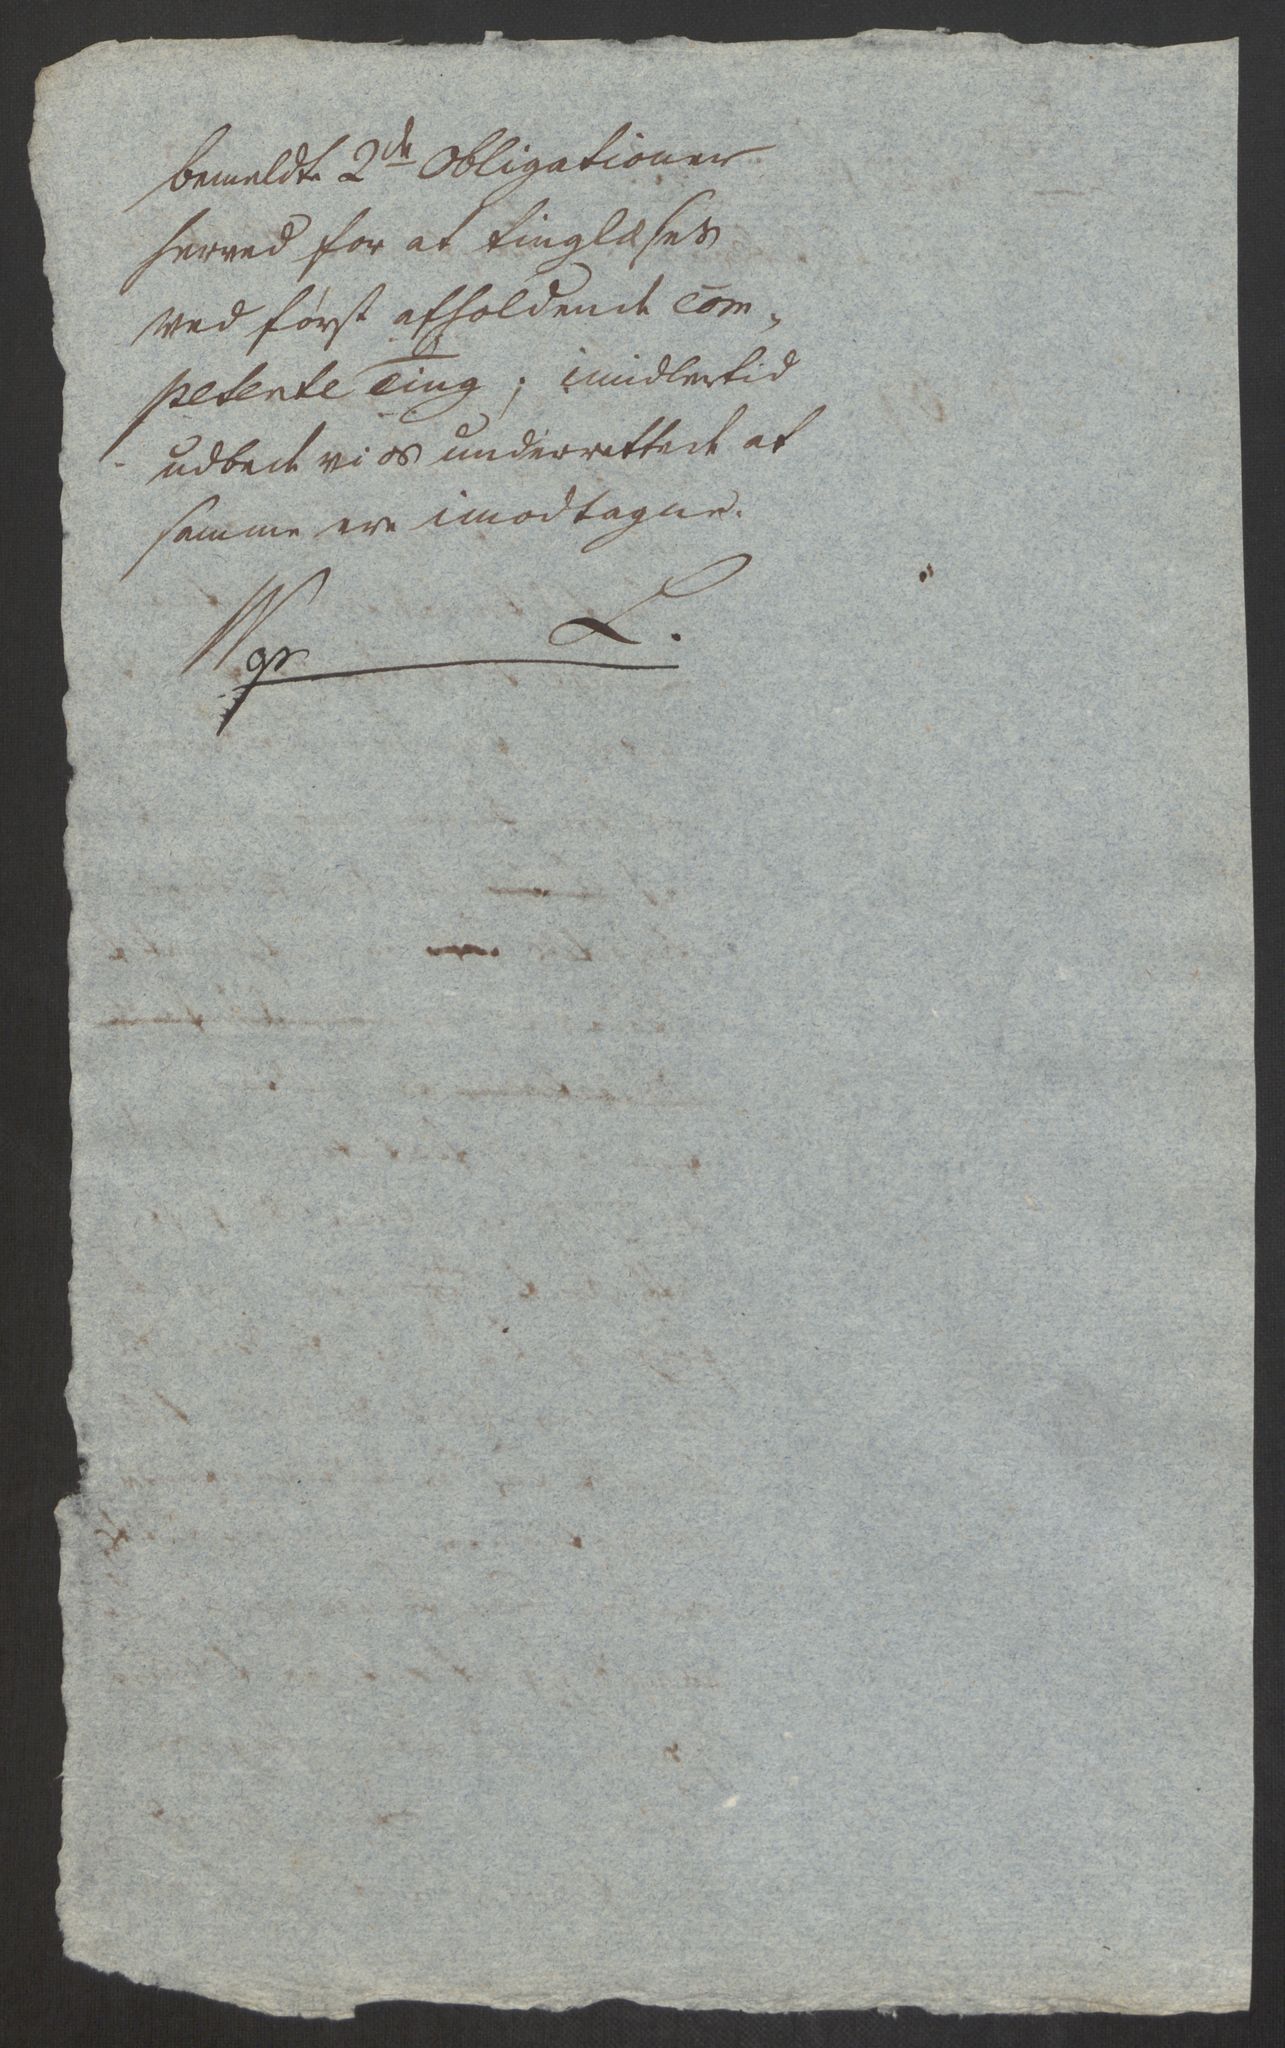 bemeldte 2de Obligationer
herved for at tinglæses
ved først afholdende Com-
petente Ting; imidlertid
udbede vi os underrettede at
samme ere imodtagne.
L.